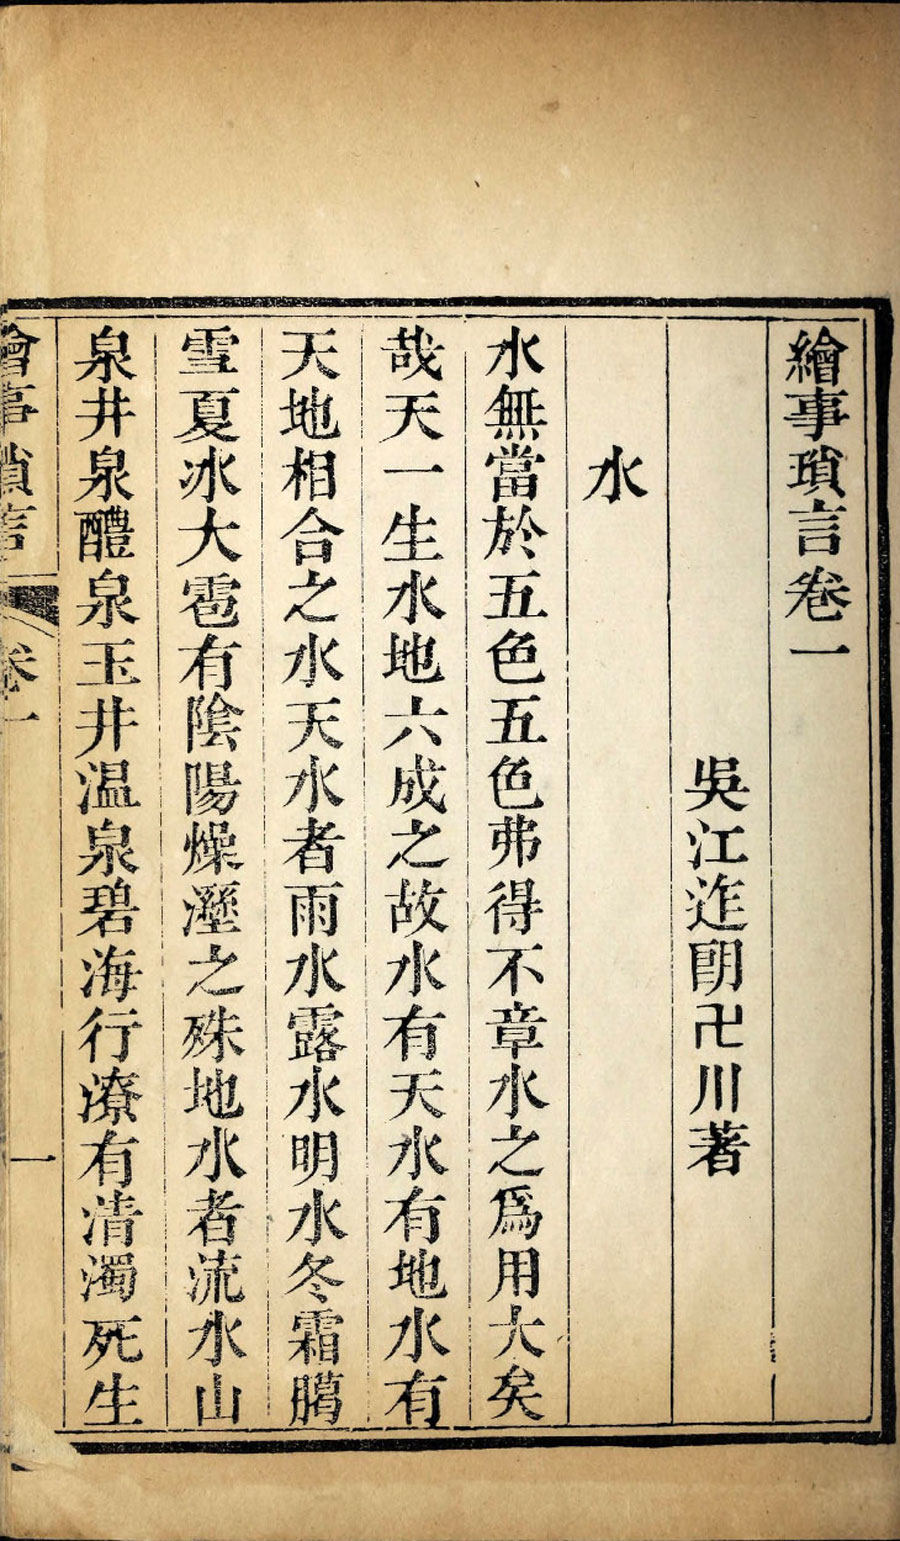 繪事瑣言卷一
吳江迮朗卍川著
水
水無當於五色五色弗得不章水之爲用大矣
哉天一生水地六成之故水有天水有地水有
天地相合之水天水者雨水露水明水冬霜臈
雪夏冰大雹有陰陽燥溼之殊地水者流水山
泉井泉醴泉玉井温泉碧海行潦有清濁死生
繪事瑣言 卷一 一